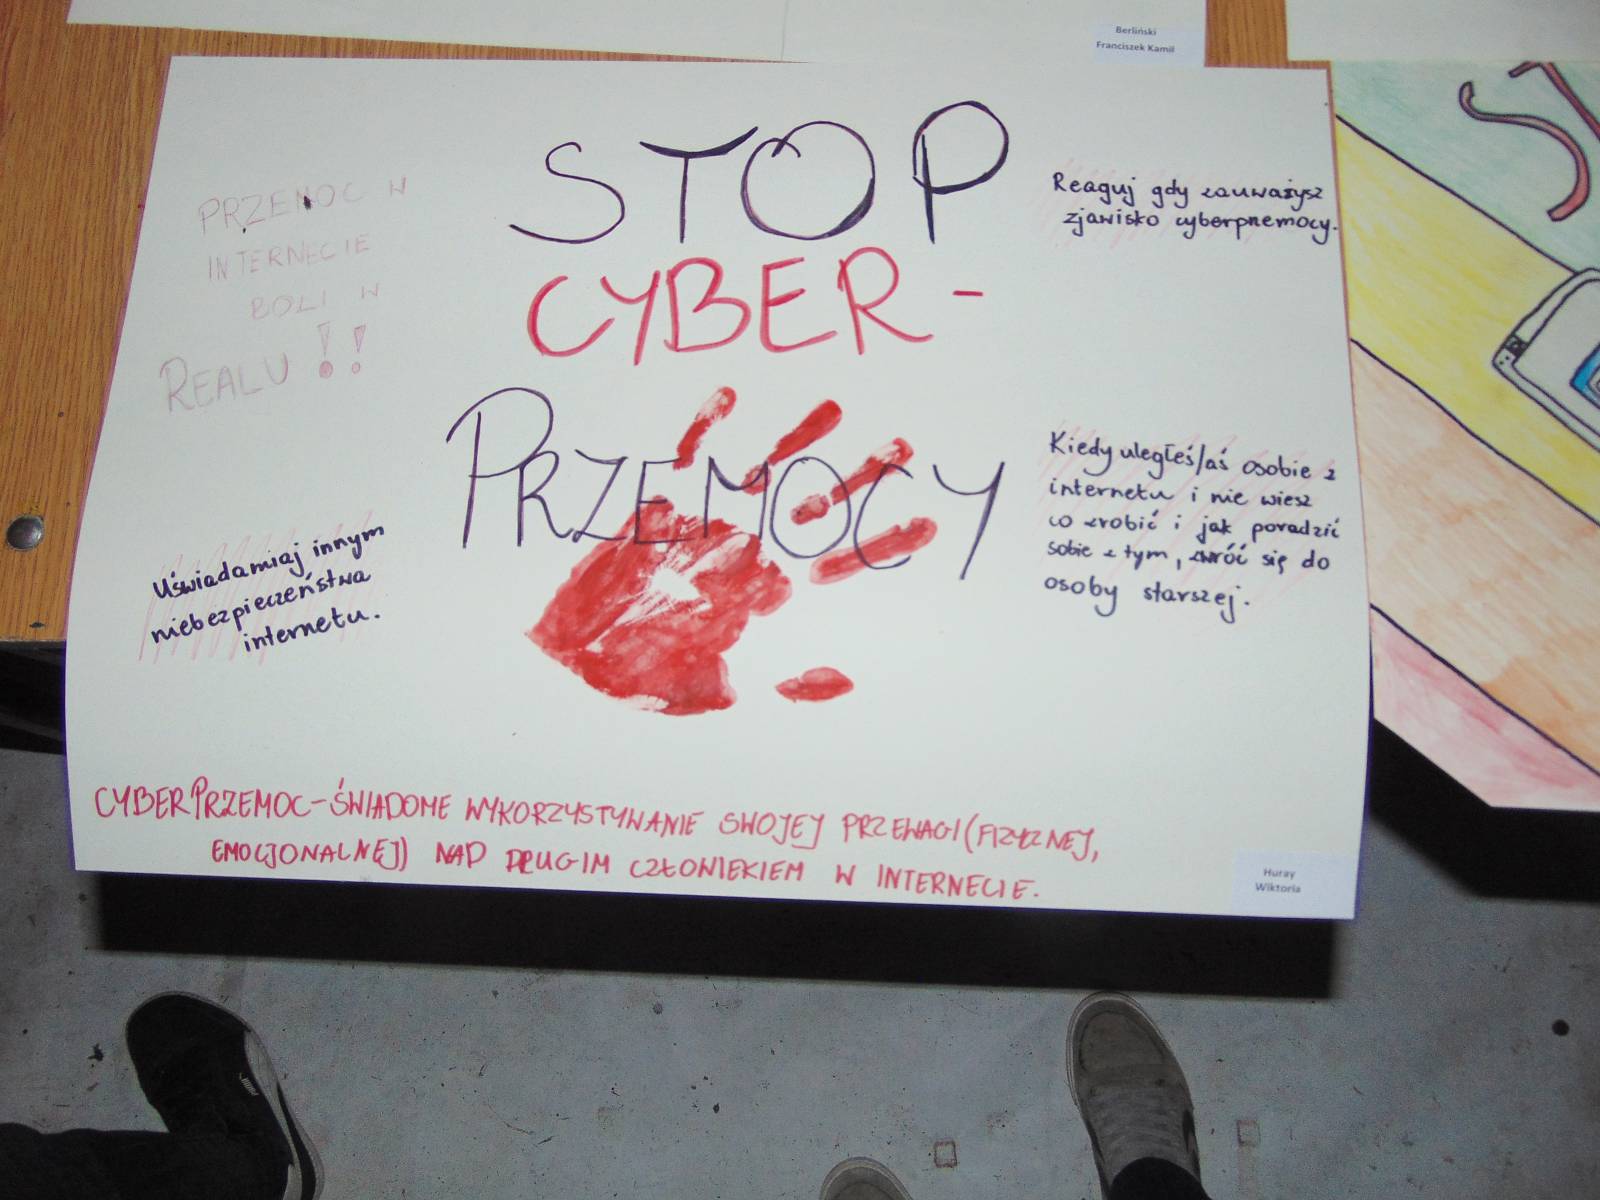 Berliński
Franciszek Kamil
STOP
CYBER-
PRZEMOCY
PRZEMOC W
INTERNECIE
BOLI W
REALU !!
Reaguj gdy zauważysz
zjawisko cyberprzemocy.
Uświadamiaj innym
niebezpieczeństwa
internetu.
Kiedy uległeś/aś osobie z
internetu i nie wiesz
co zrobić i jak poradzić
sobie z tym, zwróć się do
osoby starszej.
CYBERPRZEMOC-ŚWIADOME WYKORZYSTYWANIE SWOJEJ PRZEWAGI (FIZYCZNEJ,
EMOCJONALNEJ) NAD DRUGIM CZŁOWIEKIEM W INTERNECIE.
Huray
Wiktoria